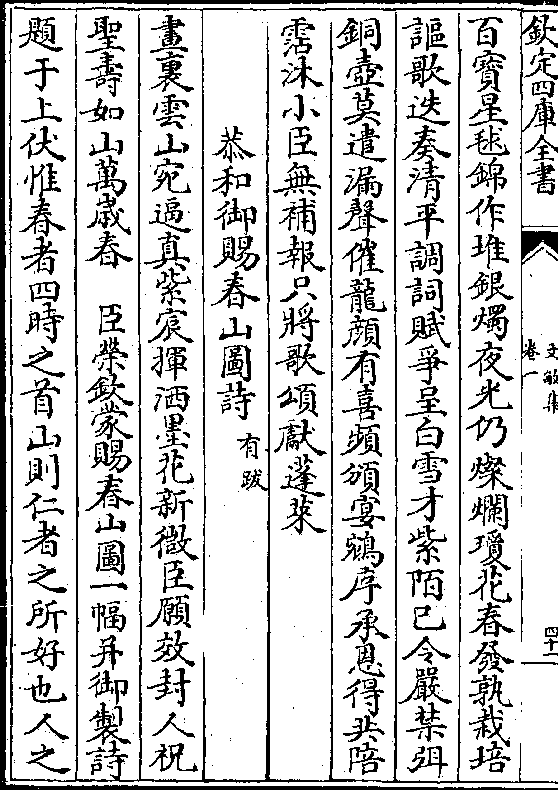 欽定四庫全書
文敏集
卷一
四十一
百寶星毬錦作堆銀燭夜光仍燦爛瓊花春發孰栽培
謳歌迭奏清平調詞賦爭呈白雪才紫陌已令嚴禁弛
銅壺莫遣漏聲催龍顔有喜頻頒宴鵷序承恩得共陪
霑沐小臣無補報只將歌頌獻蓬萊
恭和御賜春山圖詩有跋
畫裏雲山宛逼真紫宸揮洒墨花新微臣願效封人祝
聖壽如山萬歲春 臣榮欽蒙賜春山圖一幅并御製詩
題于上伏惟春者四時之首山則仁者之所好也人之